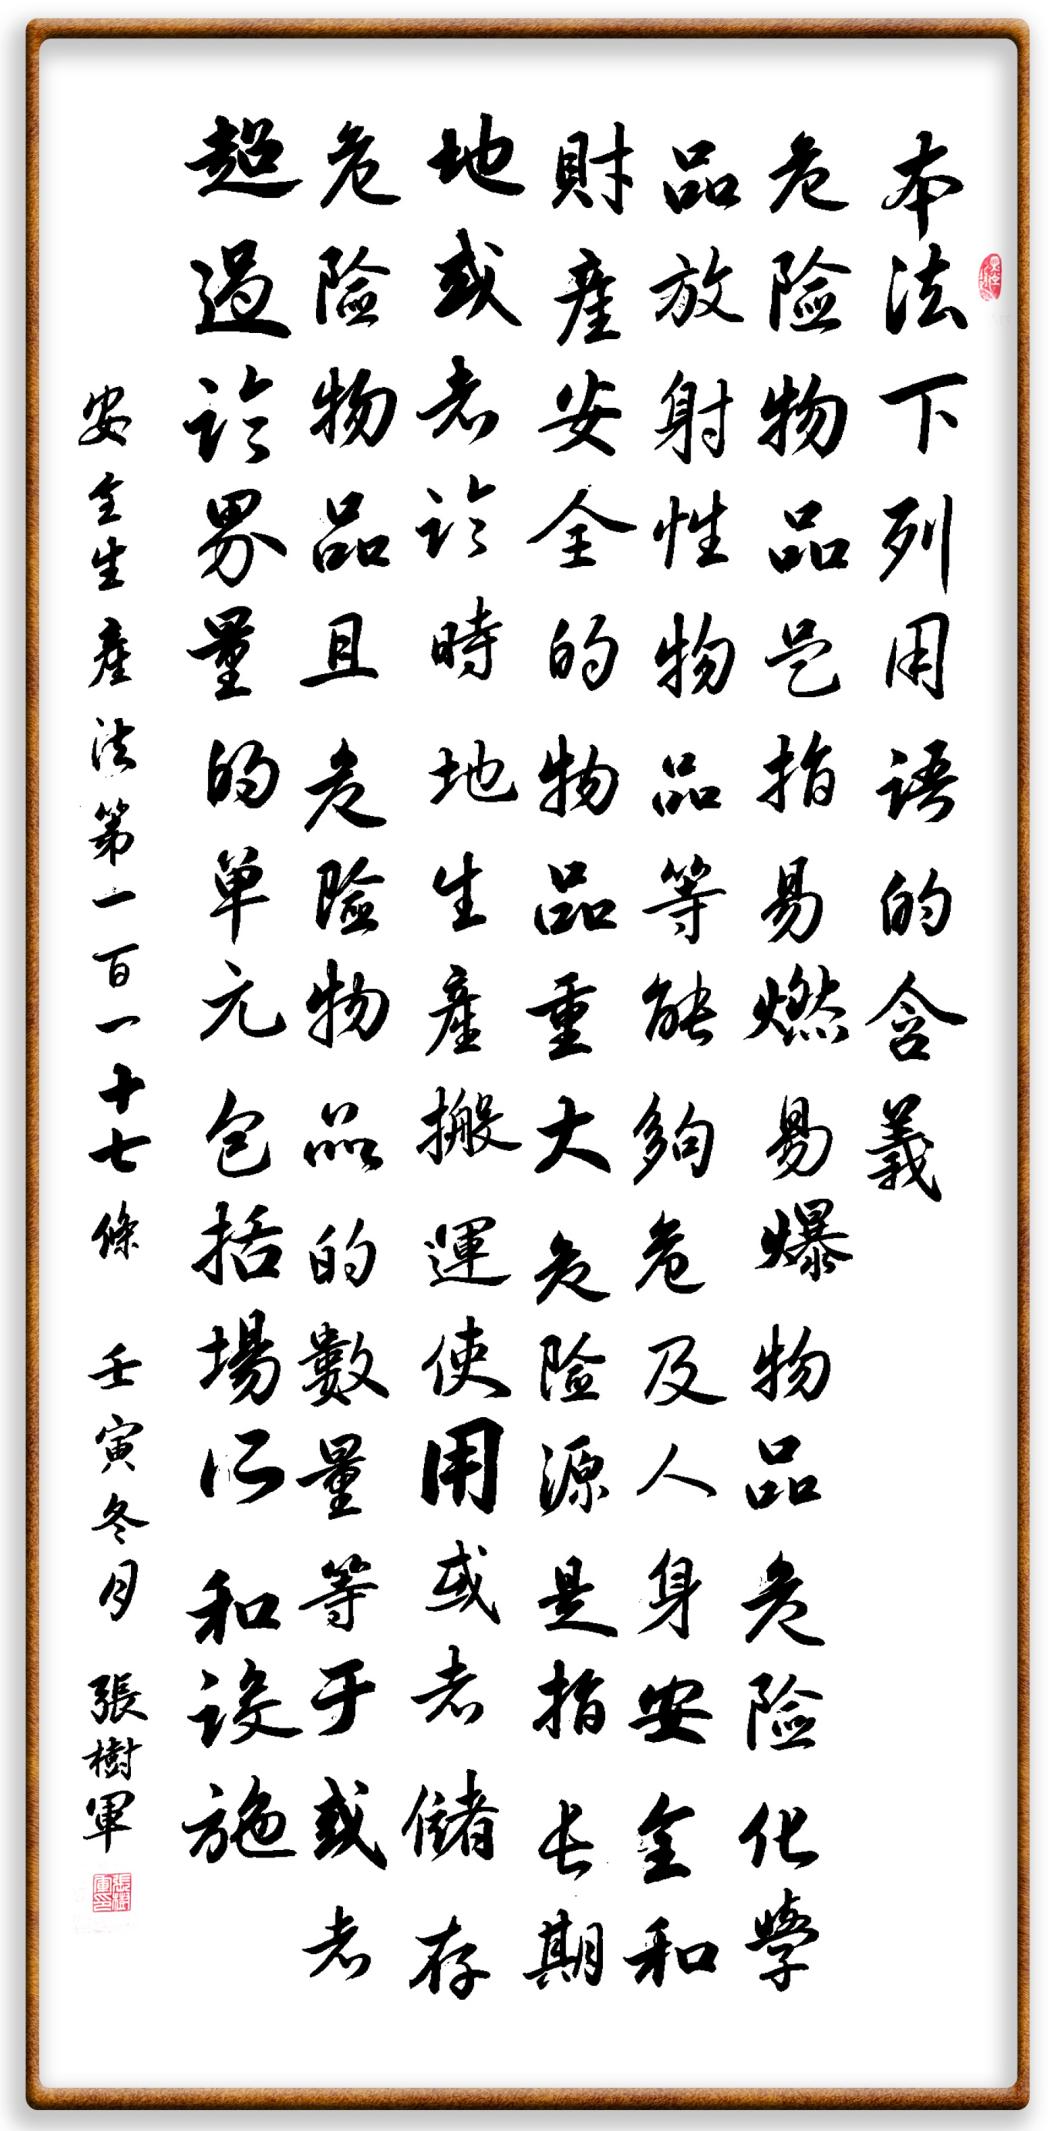 本法下列用語的含義
危险物品是指易燃易爆物品危险化學
品放射性物品等能夠危及人身安全和
財產安全的物品重大危险源是指长期
地或者臨時地生產搬運使用或者儲存
危险物品且危险物品的數量等于或者
超過臨界量的单元包括場所和设施
安全生產法第一百一十七條 壬寅冬月 張樹軍
張樹軍印